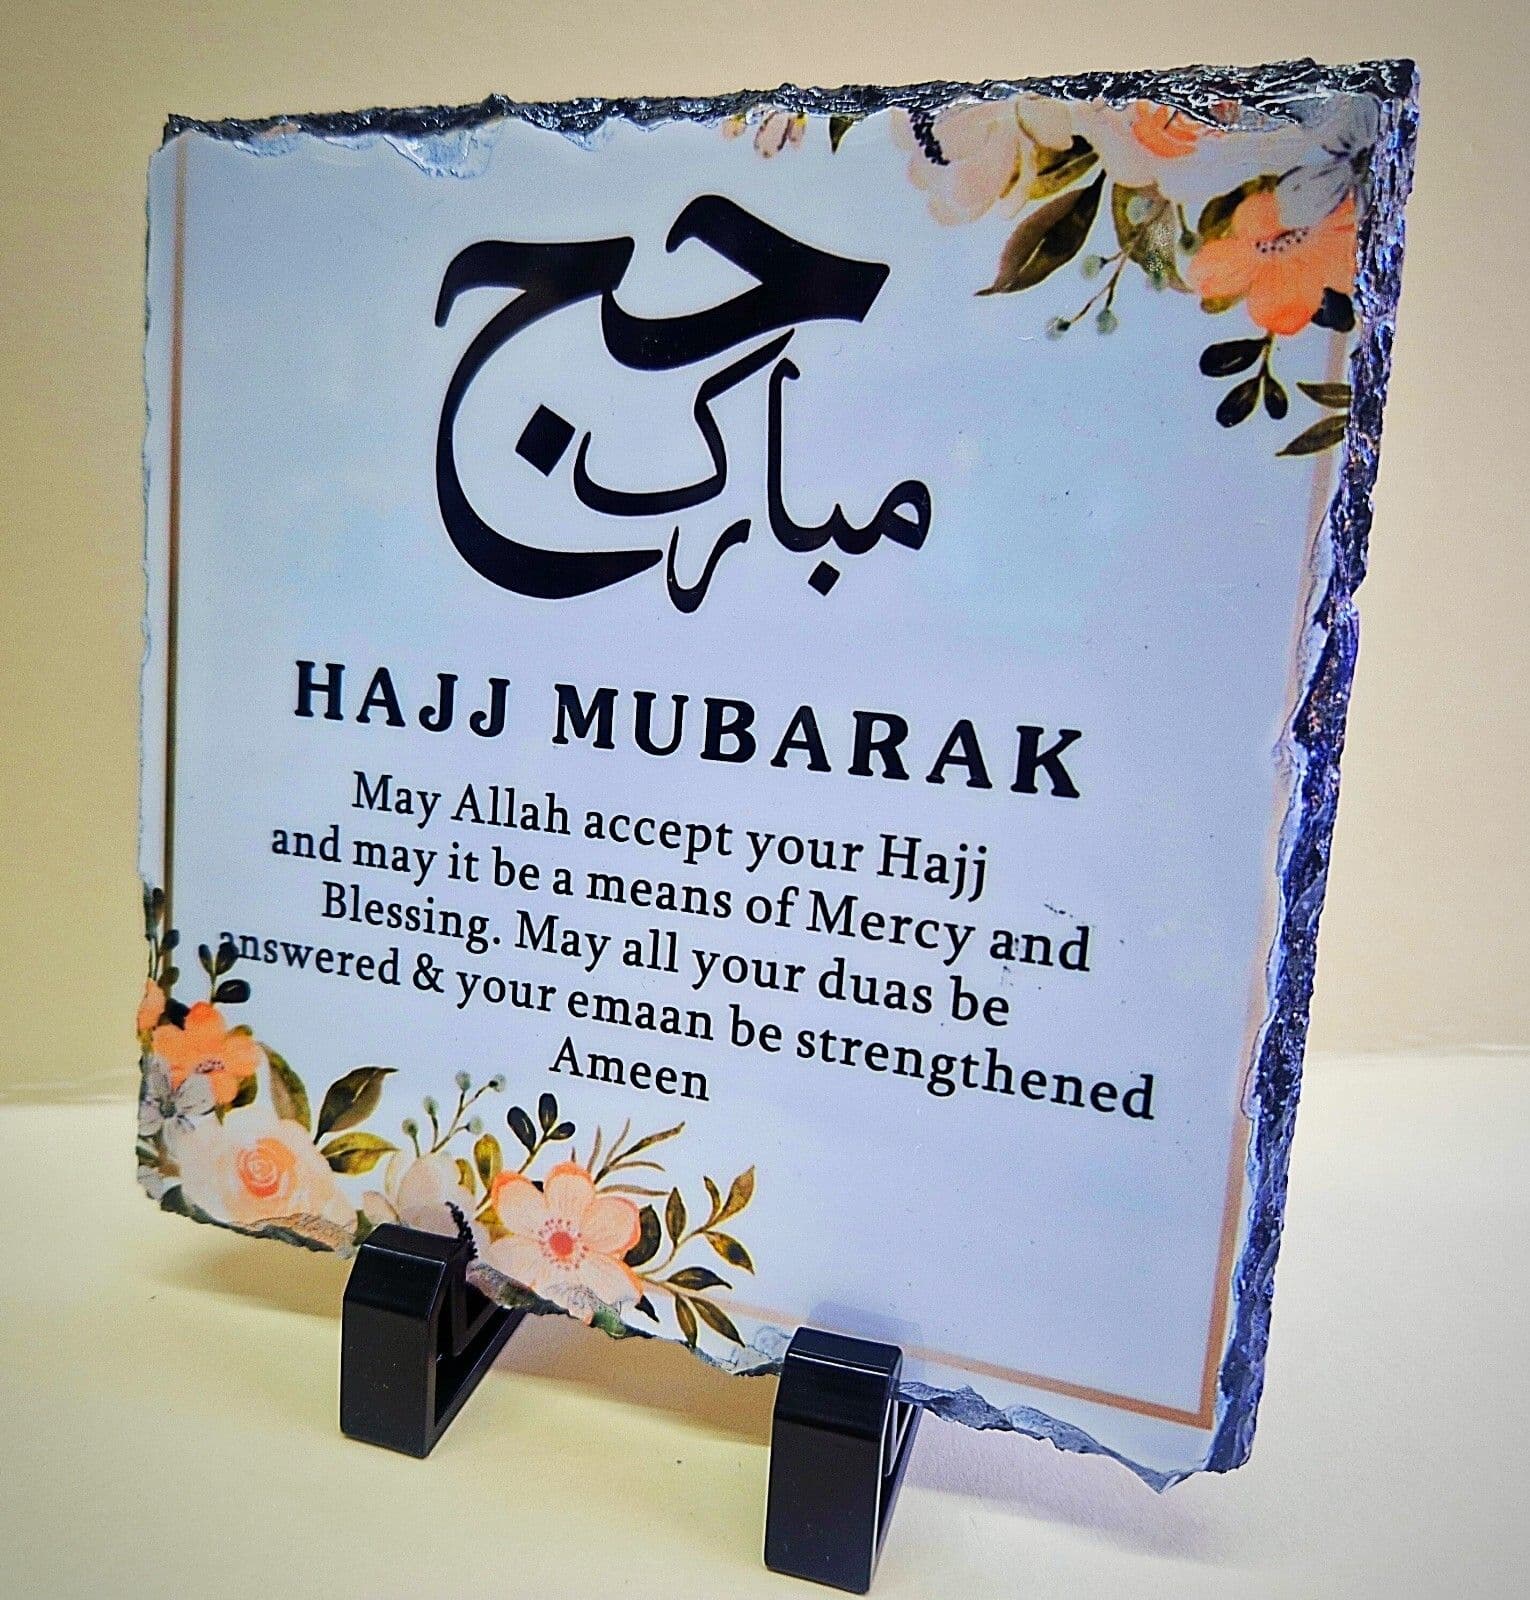 حج
مبارك
HAJJ MUBARAK
May Allah accept your Hajj
and may it be a means of Mercy and
Blessing. May all your duas be
answered & your emaan be strengthened
Ameen